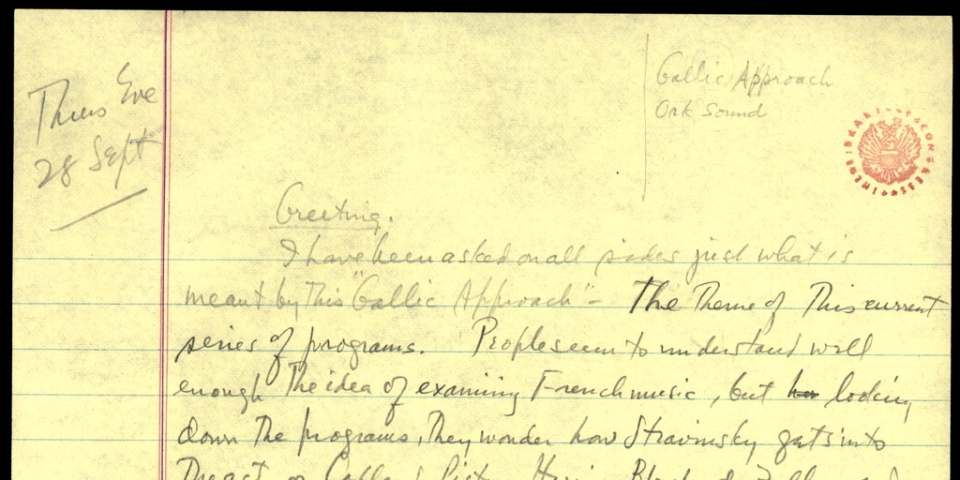 Thurs Eve
28 Sept
Gallic Approach
Ork Sound
LIBRARY OF CONGRESS
Greeting.
I have been asked on all sides just what is
meant by this "Gallic Approach" - The Theme of This current
series of programs. People seem to understand well
enough The idea of examining French music, but how looking
down the programs, they wonder how Stravinsky gets into